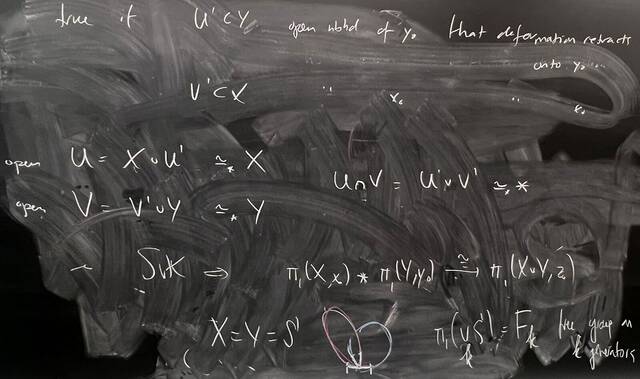 true if U' ⊂ Y open nbhd of y₀ that deformation retracts onto y₀
V' ⊂ X " x₀ " x₀
open U = X ∨ U' ≃* X
U∩V = U' ∨ V' ≃* *
open V = V' ∨ Y ≃* Y
~ SvK ⇒ π₁(X,x₀) * π₁(Y,y₀) →≅ π₁(X∨Y, z₀)
X = Y = S¹ π₁(∨ₖ S¹) = Fₖ free group on k generators